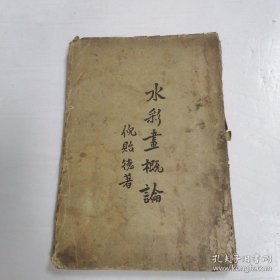 水彩畫概論
倪貽德著
孔夫子旧书网